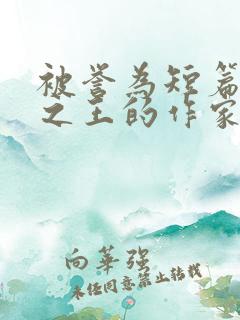 被誉为短篇
之王的作家
向華強
未经同意禁止转载